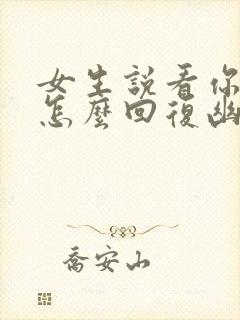 女生說看你
怎麼回復幽
喬安山